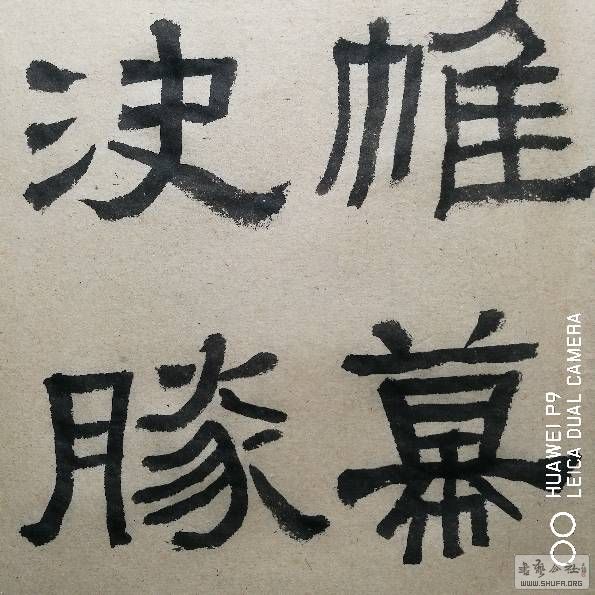 帷幕
決勝
HUAWEI P9
LEICA DUAL CAMERA
WWW.SHUFA.ORG